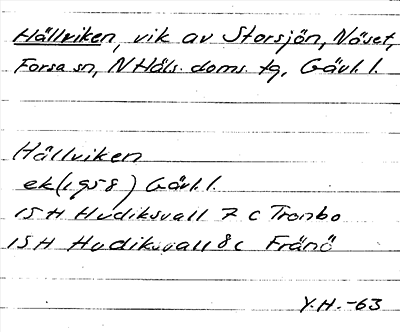 Hällviken, vik av Storsjön, Näset,
Forsa sn, N Häls. doms. tg, Gävl. l.
Hällviken
ek (1958) Gävl. l.
15 H Hudiksvall 7 c Trombo
15 H Hudiksvall 8 c Fränö
Y.H. -63